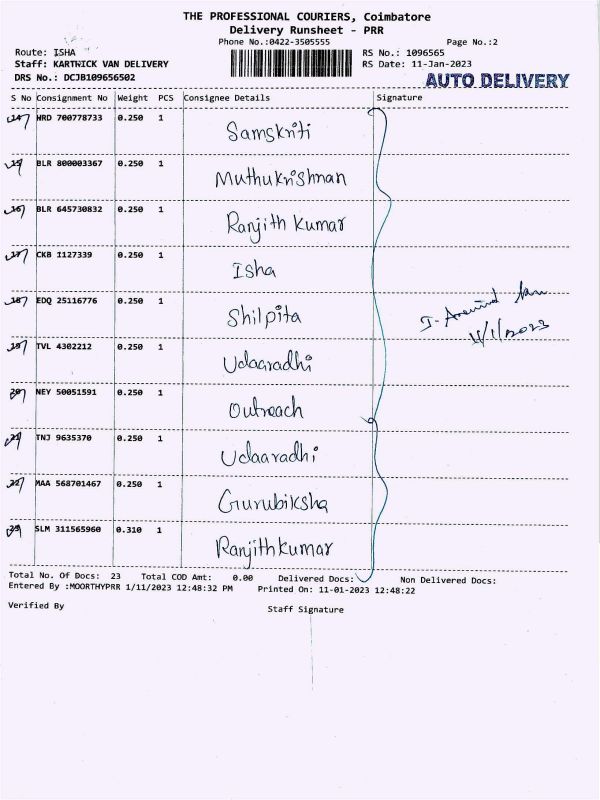 THE PROFESSIONAL COURIERS, Coimbatore
Delivery Runsheet - PRR
Phone No.:0422-3505555 Page No.:2
Route: ISHA RS No.: 1096565
Staff: KARTHICK VAN DELIVERY RS Date: 11-Jan-2023
DRS No.: DCJB109656502 AUTO DELIVERY
S No Consignment No Weight PCS Consignee Details Signature
14 HRD 700778733 0.250 1 Samskriti
15 BLR 800003367 0.250 1 Muthukrishnan
16 BLR 645730832 0.250 1 Ranjith Kumar
17 CKB 1127339 0.250 1 Isha
18 EDQ 25116776 0.250 1 Shilpita
19 TVL 4302212 0.250 1 Udaaradhi
20 NEY 50051591 0.250 1 Outreach
21 TNJ 9635370 0.250 1 Udaaradhi
22 MAA 568701467 0.250 1 Gurubiksha
23 SLM 311565960 0.310 1 Ranjithkumar
11/1/2023
Total No. Of Docs: 23 Total COD Amt: 0.00 Delivered Docs: Non Delivered Docs:
Entered By :MOORTHYPRR 1/11/2023 12:48:32 PM Printed On: 11-01-2023 12:48:22
Verified By Staff Signature